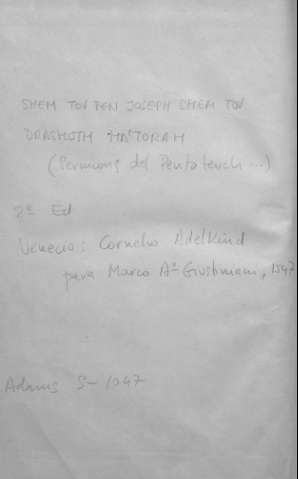 SHEM TOV BEN JOSEPH SHEM TOV
DRASHOTH HATORAH
(Sermons del Pentateuch...)
2ª Ed
Venecia: Cornelio Adelkind
para Marco Aº Giustiniani, 1547
Adams S-1047